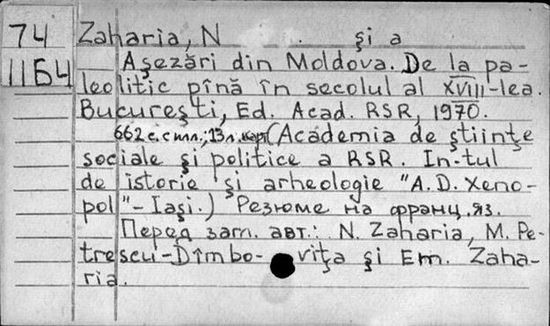 74 Zaharia, N . . și a
11Б4 Așezări din Moldova. De la pa-
leolitic pînă în secolul al XVIII-lea.
București, Ed. Acad. RSR, 1970.
662 с. с илл.; 13 л. карт. (Academia de științe
sociale și politice a RSR. In-tul
de istorie și arheologie "A. D. Xeno-
pol" - Iași.) Резюме на франц. яз.
Перед заг. авт.: N. Zaharia, M. Pe-
trescu-Dîmbo- vița și Em. Zaha-
ria.